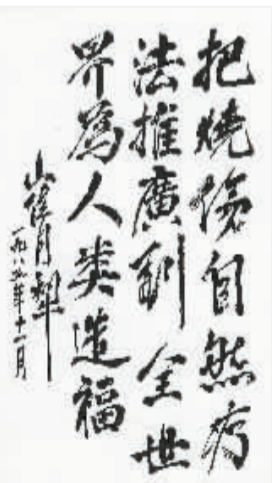 把燒傷自然疗
法推廣到全世
界為人类造福
崔月犁
一九八九年十一月